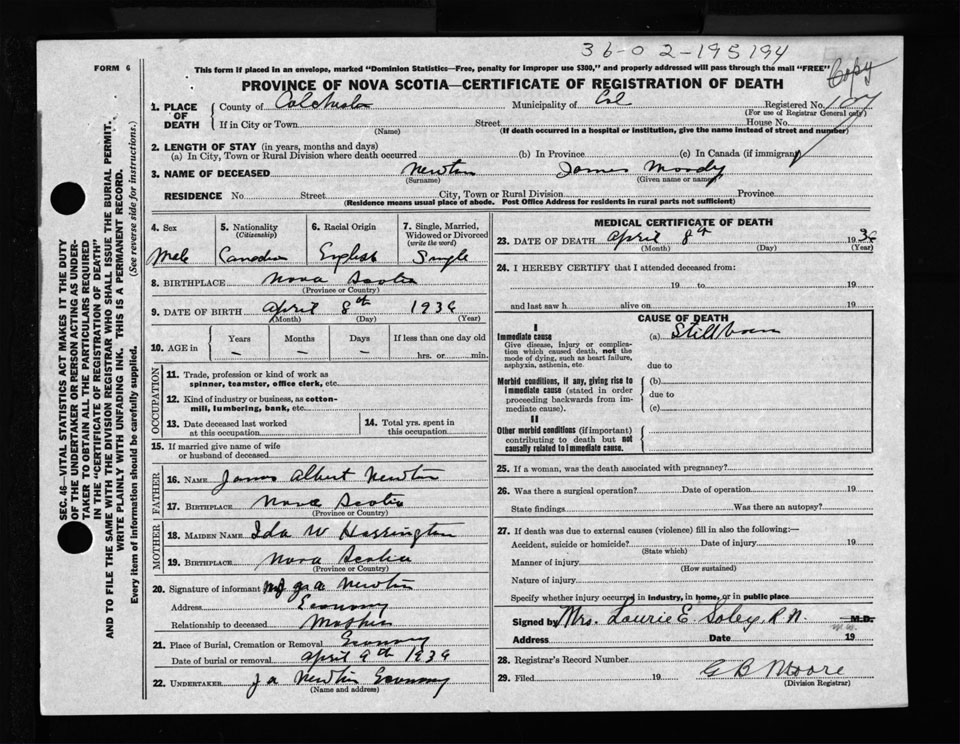 36-02-195194
Copy
FORM 6
This form if placed in an envelope, marked "Dominion Statistics—Free, penalty for improper use $300," and properly addressed will pass through the mail "FREE"
PROVINCE OF NOVA SCOTIA—CERTIFICATE OF REGISTRATION OF DEATH
1. PLACE OF DEATH
County of Colchester Municipality of Col Registered No. 107
(For use of Registrar General only)
If in City or Town Street House No.
(Name) (If death occurred in a hospital or institution, give the name instead of street and number)
2. LENGTH OF STAY (in years, months and days)
(a) In City, Town or Rural Division where death occurred (b) In Province (c) In Canada (if immigrant)
3. NAME OF DECEASED Newton James Moody
(Surname) (Given name or names)
RESIDENCE No Street City, Town or Rural Division Province
(Residence means usual place of abode. Post Office Address for residents in rural parts not sufficient)
4. Sex
Male
5. Nationality
(Citizenship)
Canadian
6. Racial Origin
English
7. Single, Married, Widowed or Divorced
(write the word)
Single
8. BIRTHPLACE Nova Scotia
(Province or Country)
9. DATE OF BIRTH April 8th 1936
(Month) (Day) (Year)
10. AGE in
Years Months Days If less than one day old
– – – hrs. or min.
OCCUPATION
11. Trade, profession or kind of work as
spinner, teamster, office clerk, etc.
12. Kind of industry or business, as cotton-
mill, lumbering, bank, etc.
13. Date deceased last worked
at this occupation
14. Total yrs. spent in
this occupation
15. If married give name of wife
or husband of deceased
FATHER
16. NAME James Albert Newton
17. BIRTHPLACE Nova Scotia
(Province or Country)
MOTHER
18. MAIDEN NAME Ida W Harrington
19. BIRTHPLACE Nova Scotia
(Province or Country)
20. Signature of informant J A Newton
Address Economy
Relationship to deceased Mother
21. Place of Burial, Cremation or Removal Economy
Date of burial or removal April 9th 1936
22. UNDERTAKER J A Newton Economy
(Name and address)
MEDICAL CERTIFICATE OF DEATH
23. DATE OF DEATH April 8th 1936
(Month) (Day) (Year)
24. I HEREBY CERTIFY that I attended deceased from:
19 to 19
and last saw h alive on 19
CAUSE OF DEATH
I
Immediate cause
Give disease, injury or complica-
tion which caused death, not the
mode of dying, such as heart failure,
asphyxia, asthenia, etc.
(a) Stillborn
due to
Morbid conditions, if any, giving rise to
immediate cause (stated in order
proceeding backwards from im-
mediate cause).
(b)
due to
(c)
II
Other morbid conditions (if important)
contributing to death but not
causally related to immediate cause.
25. If a woman, was the death associated with pregnancy?
26. Was there a surgical operation? Date of operation 19
State findings Was there an autopsy?
27. If death was due to external causes (violence) fill in also the following:—
Accident, suicide or homicide? Date of injury 19
(State which)
Manner of injury
(How sustained)
Nature of injury
Specify whether injury occurred in industry, in home, or in public place
Signed by Mrs. Laurie E. Soley, R.N. M.D.
Address Date 19
28. Registrar's Record Number
29. Filed 19 G B Moore
(Division Registrar)
SEC. 46—VITAL STATISTICS ACT MAKES IT THE DUTY
OF THE UNDERTAKER OR PERSON ACTING AS UNDER-
TAKER TO OBTAIN ALL THE PARTICULARS REQUIRED
IN THE "CERTIFICATE OF REGISTRATION OF DEATH"
AND TO FILE THE SAME WITH THE DIVISION REGISTRAR WHO SHALL ISSUE THE BURIAL PERMIT.
WRITE PLAINLY WITH UNFADING INK. THIS IS A PERMANENT RECORD.
Every item of information should be carefully supplied. (See reverse side for instructions.)